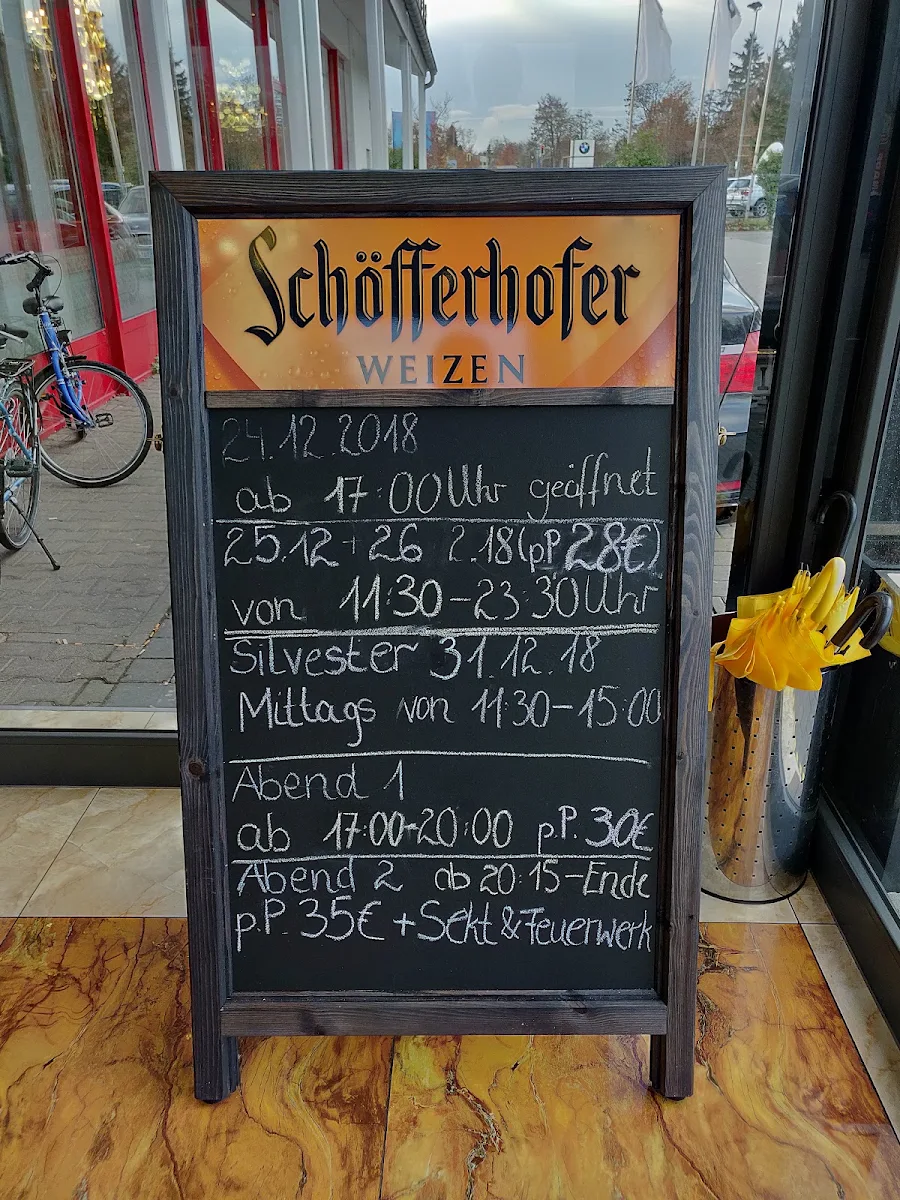 Schöfferhofer
WEIZEN
24.12.2018
ab 17:00Uhr geöffnet
25.12+26 2.18(pP 28€)
von 11:30-23:30Uhr
Silvester 31.12.18
Mittags von 11:30-15:00
Abend 1
ab 17:00-20:00 p.P. 30€
Abend 2 ab 20:15-Ende
p.P. 35€ +Sekt & Feuerwerk